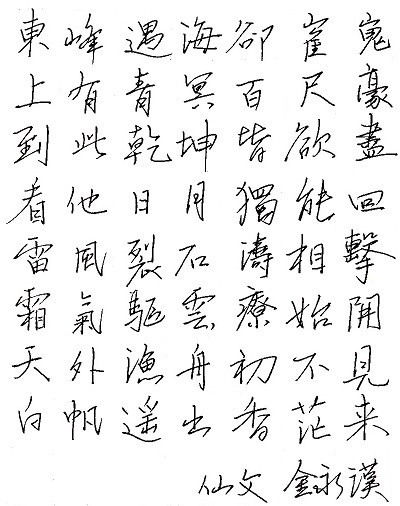 東峰遇海卻崔嵬
上有青冥百尺豪
到此乾坤皆欲盡
看他日月獨能回
雷風裂石濤相擊
霜氣驅雲療始開
天外漁舟初不見
白帆遥出香茫来
仙文 金永漢